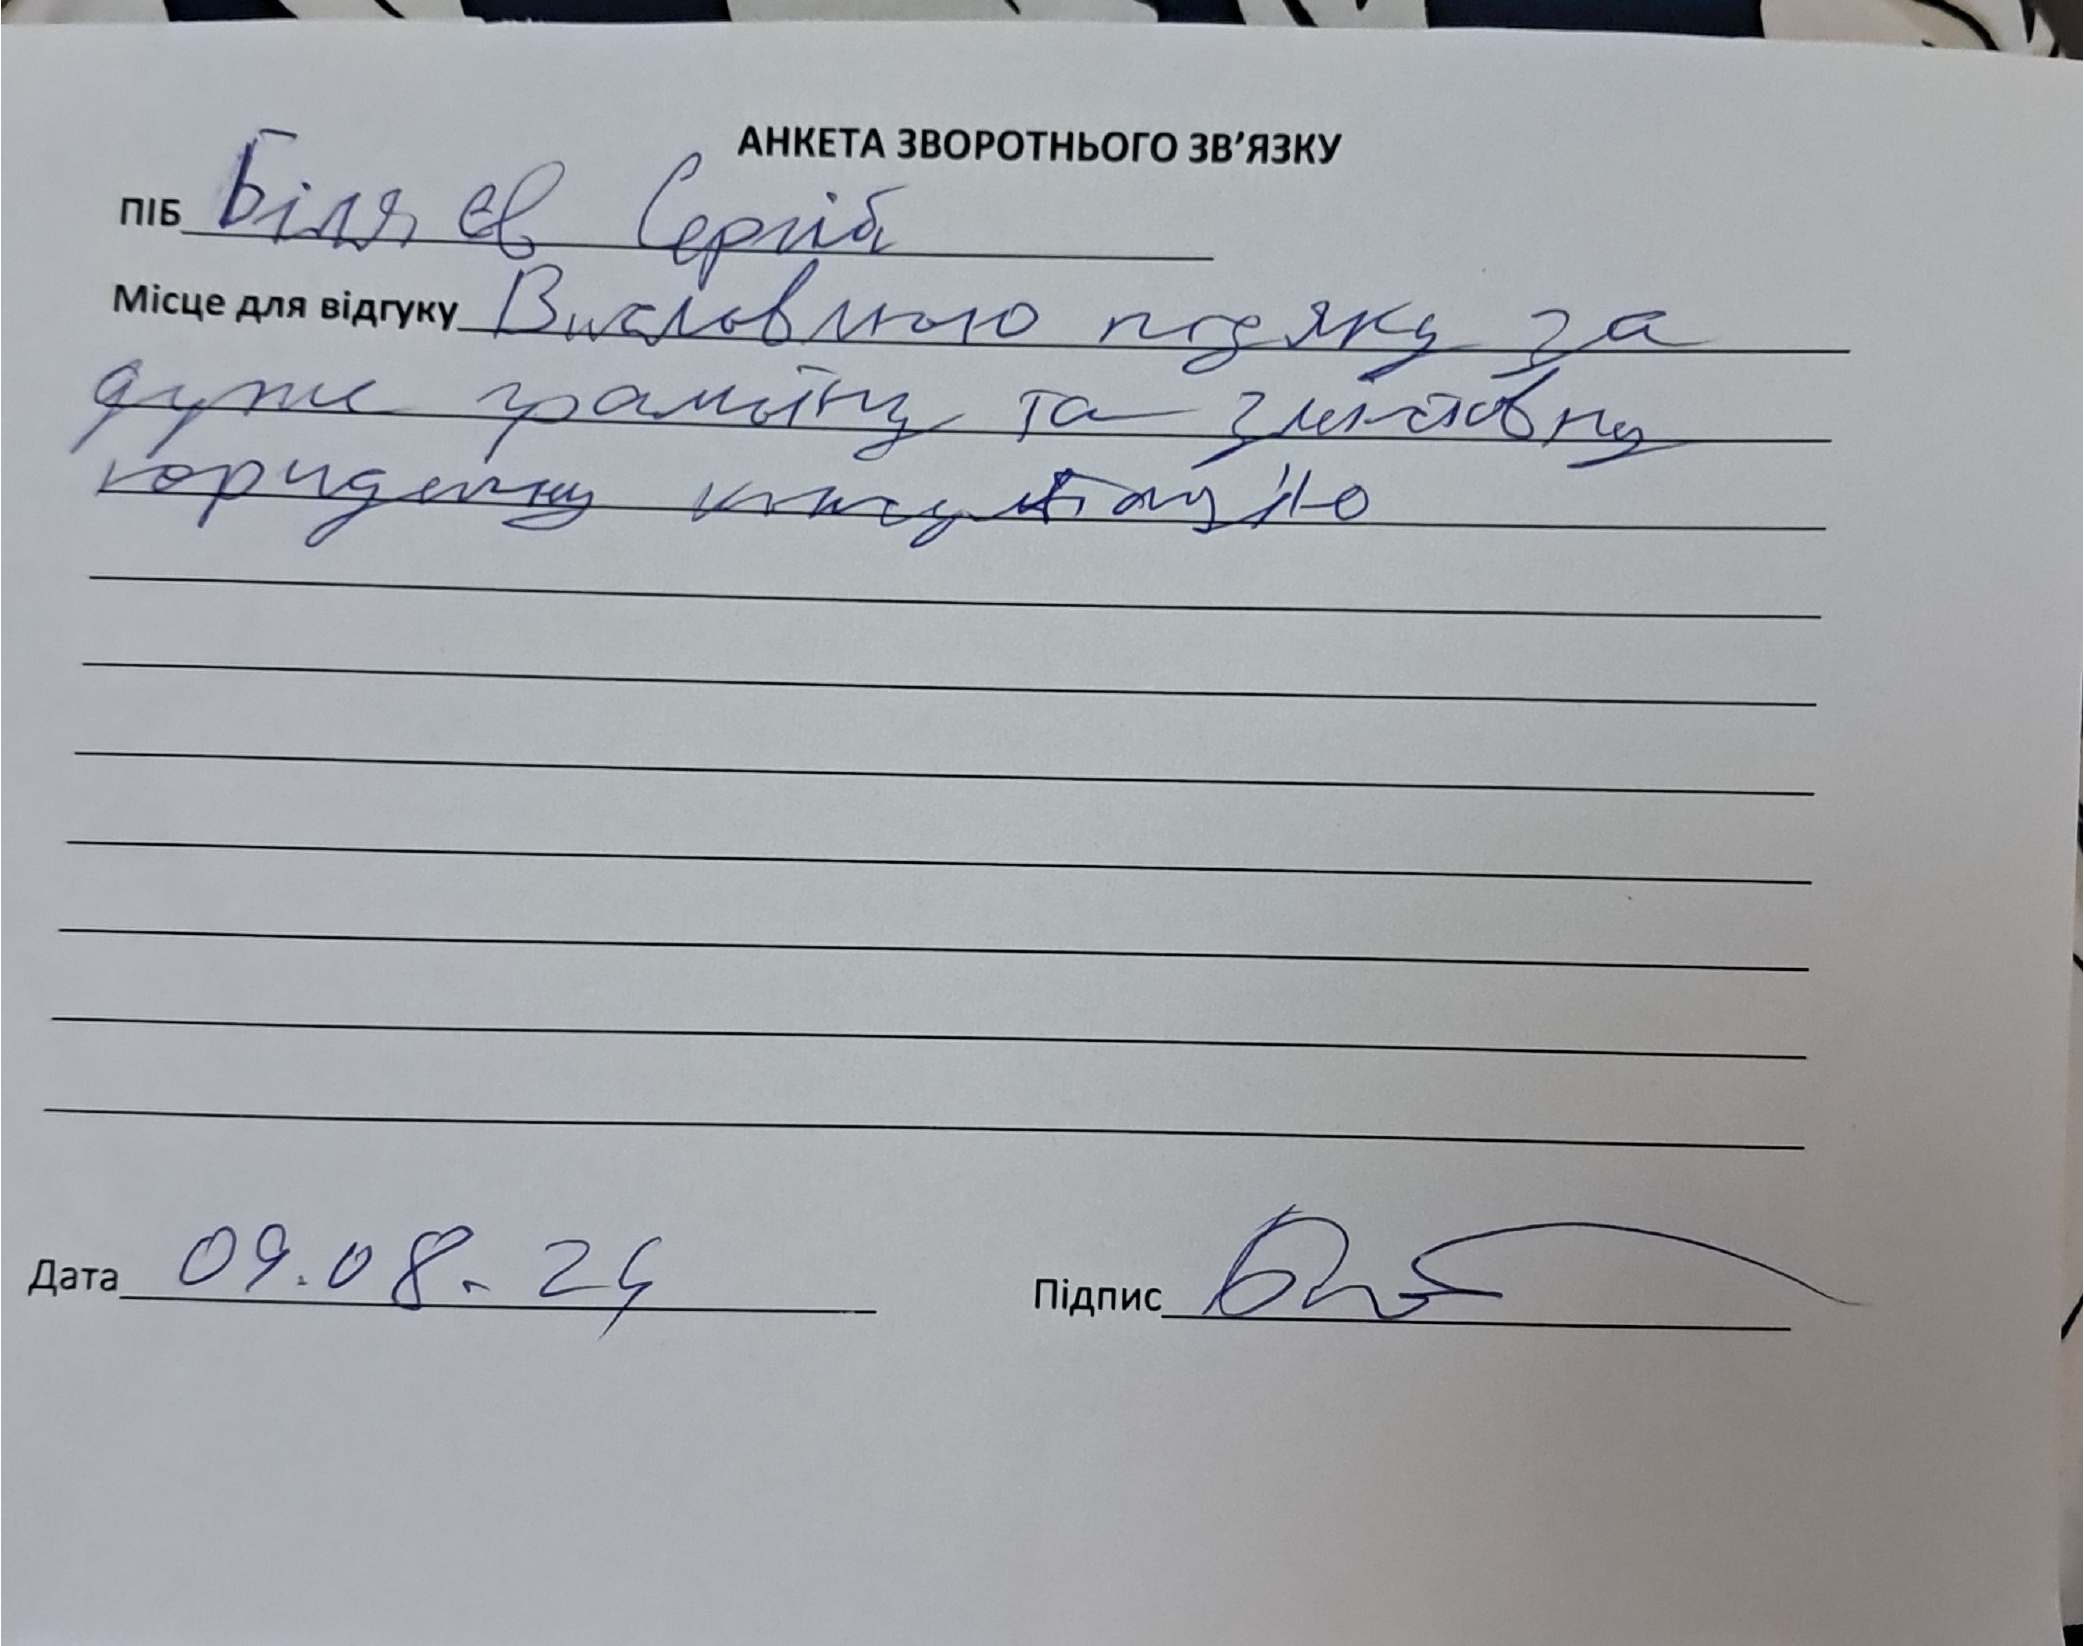 АНКЕТА ЗВОРОТНЬОГО ЗВ’ЯЗКУ
ПІБ Біляєв Сергій
Місце для відгуку Висловлюю подяку за
дуже грамотну та змістовну
юридичну консультацію
Дата 09.08.24
Підпис